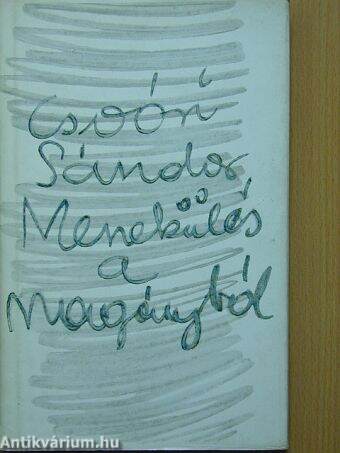 Csoóri
Sándor
Menekülés
a
magányból
Antikvárium.hu